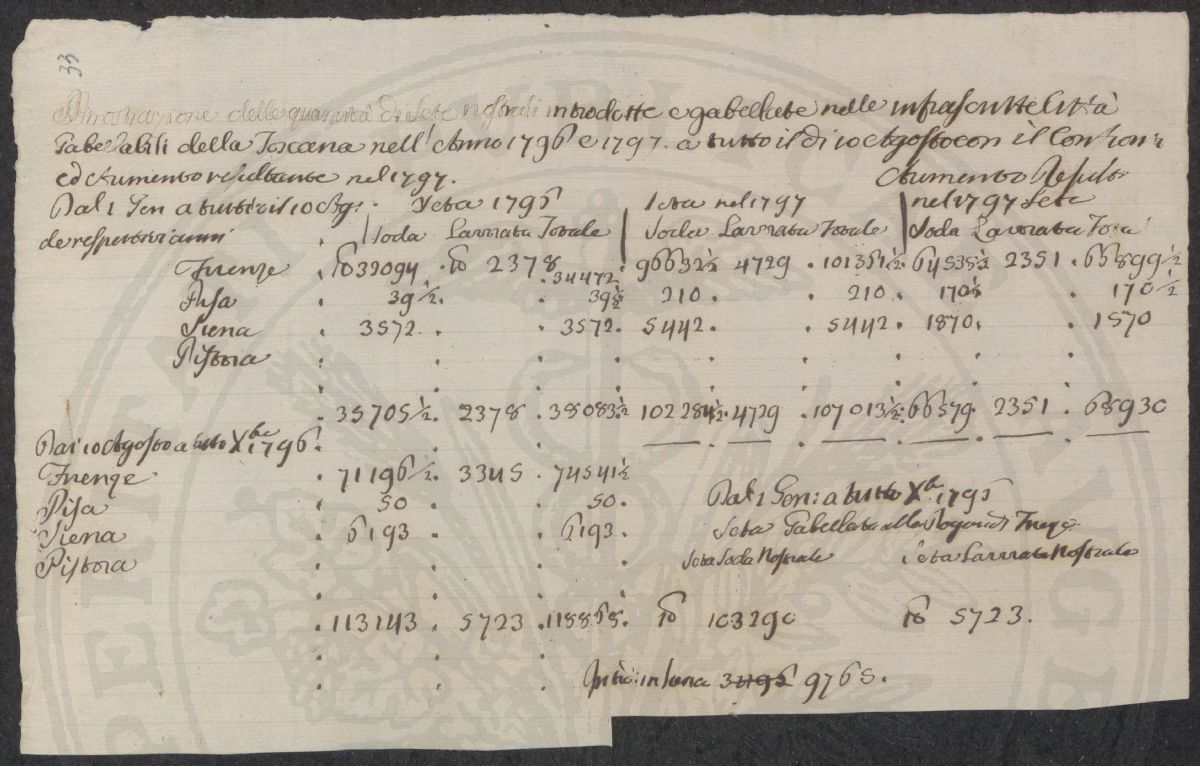 33
Dimostrazione delle quantità di Sete nostrali introdotte e gabellate nelle infrascritte Città
Gabellabili della Toscana nell' Anno 1796 e 1797. a tutto il dì 10 Agosto con il
ed Aumento resultante nel 1797. Aumento Result
Dal 1 Gen a tutto il 10 Ag: Seta 1796 Seta nel 1797 nel 1797 Seta
de respettivi anni Soda Lavorata Totale Soda Lavorata Totale Soda Lavorata
Firenze 32094 2378 34472 96632½ 4729 101361½ 64538½ 2351 66899½
Pisa 39½ 39½ 210 210 170½ 170½
Siena 3572 3572 5442 5442 1870 1870
Pistoia
35705½ 2378 38083½ 102284½ 4729 107013½ 66579 2351 68930
Dal 10 Agosto a tutto Xbre 1796.
Firenze 71196½ 3345 74541½
Pisa 50 50 Dal 1 Gen: a tutto Xbre 1796
Siena 6193 6193 Seta Gabellata alla Dogana di Firenze
Pistoia Seta Soda Nostrale Seta Lavorata Nostrale
113143 5723 118868 103290 5723.
in Siena 3495 9765.